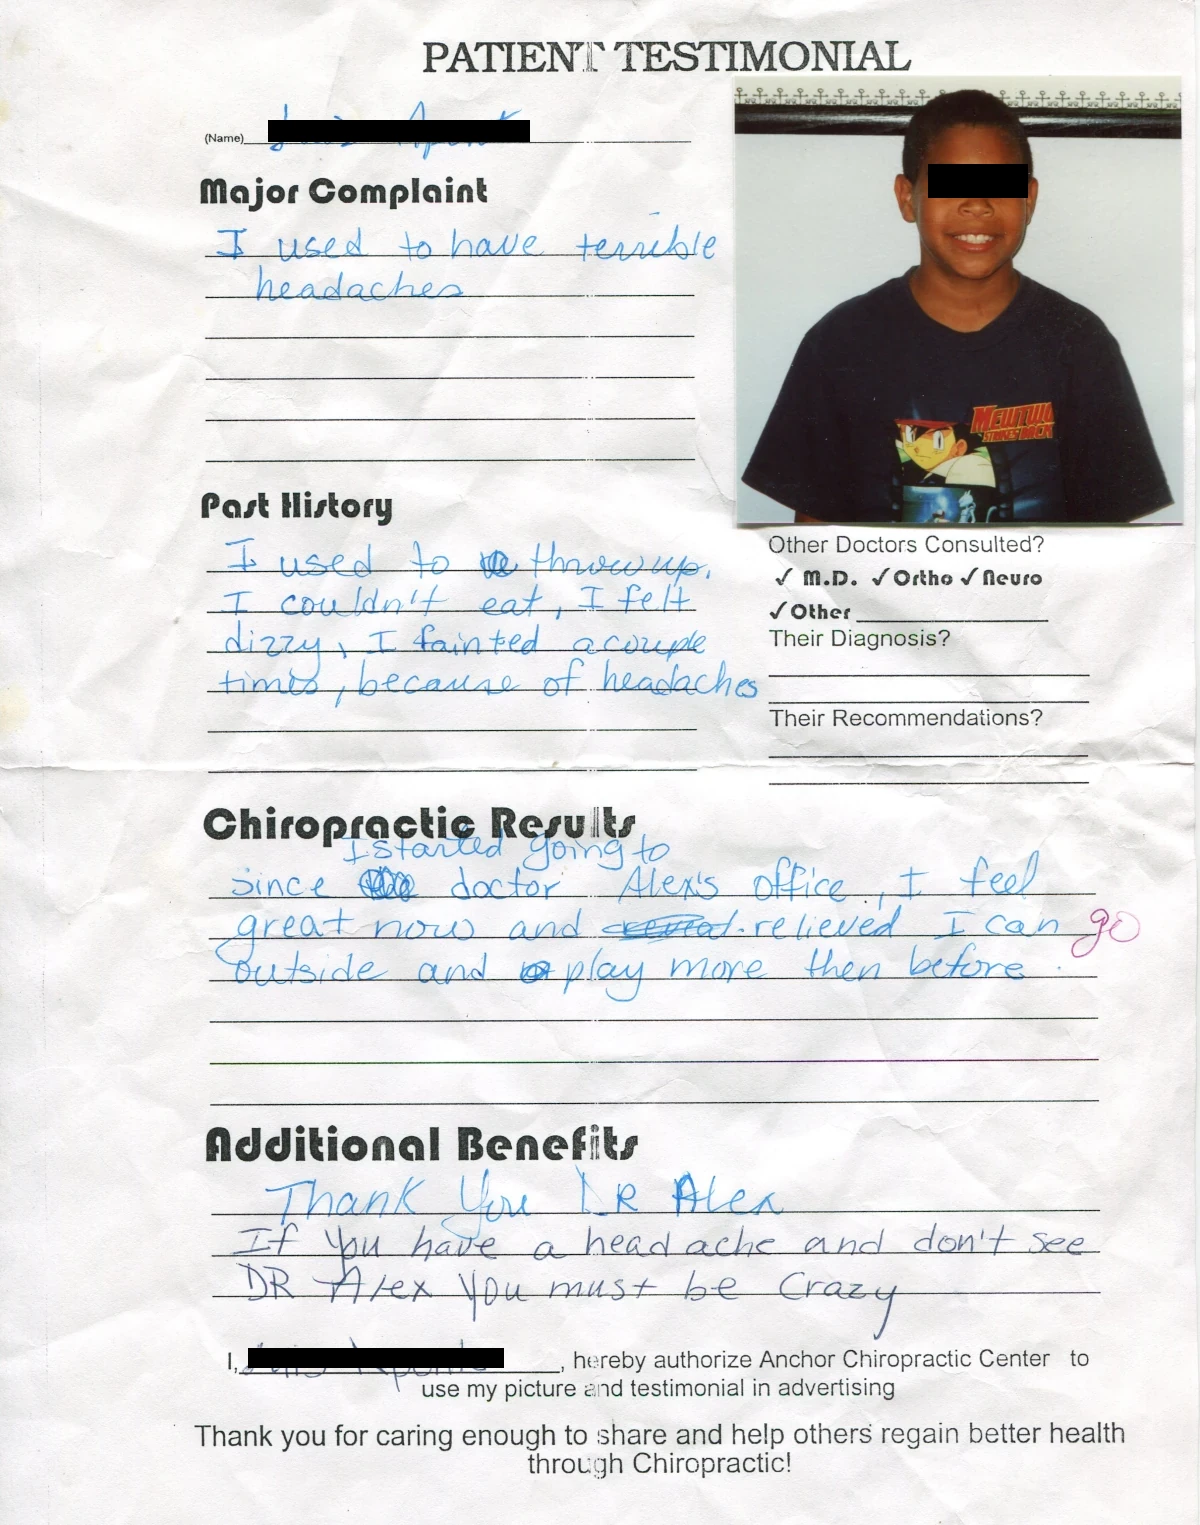 PATIENT TESTIMONIAL
(Name)
Major Complaint
I used to have terrible
headaches
Past History
I used to throw up.
I couldn't eat, I felt
dizzy, I fainted a couple
times, because of headaches
MEWTWO
STRIKES BACK
Other Doctors Consulted?
✓ M.D. ✓ Ortho ✓ Neuro
✓ Other
Their Diagnosis?
Their Recommendations?
Chiropractic Results
I started going to
since doctor Alex's office, I feel
great now and relieved I can go
outside and play more then before.
Additional Benefits
Thank You DR Alex
If you have a headache and don't see
DR Alex you must be Crazy
I, , hereby authorize Anchor Chiropractic Center to
use my picture and testimonial in advertising
Thank you for caring enough to share and help others regain better health
through Chiropractic!